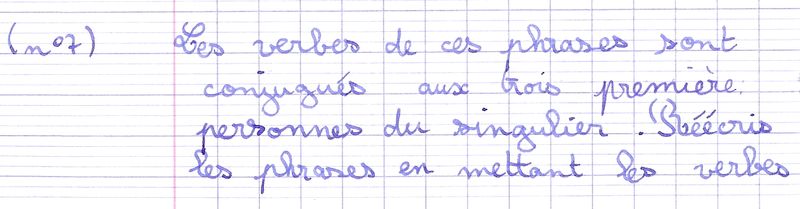 (n°7) Les verbes de ces phrases sont
conjugués aux trois première
personnes du singulier. Réécris
les phrases en mettant les verbes